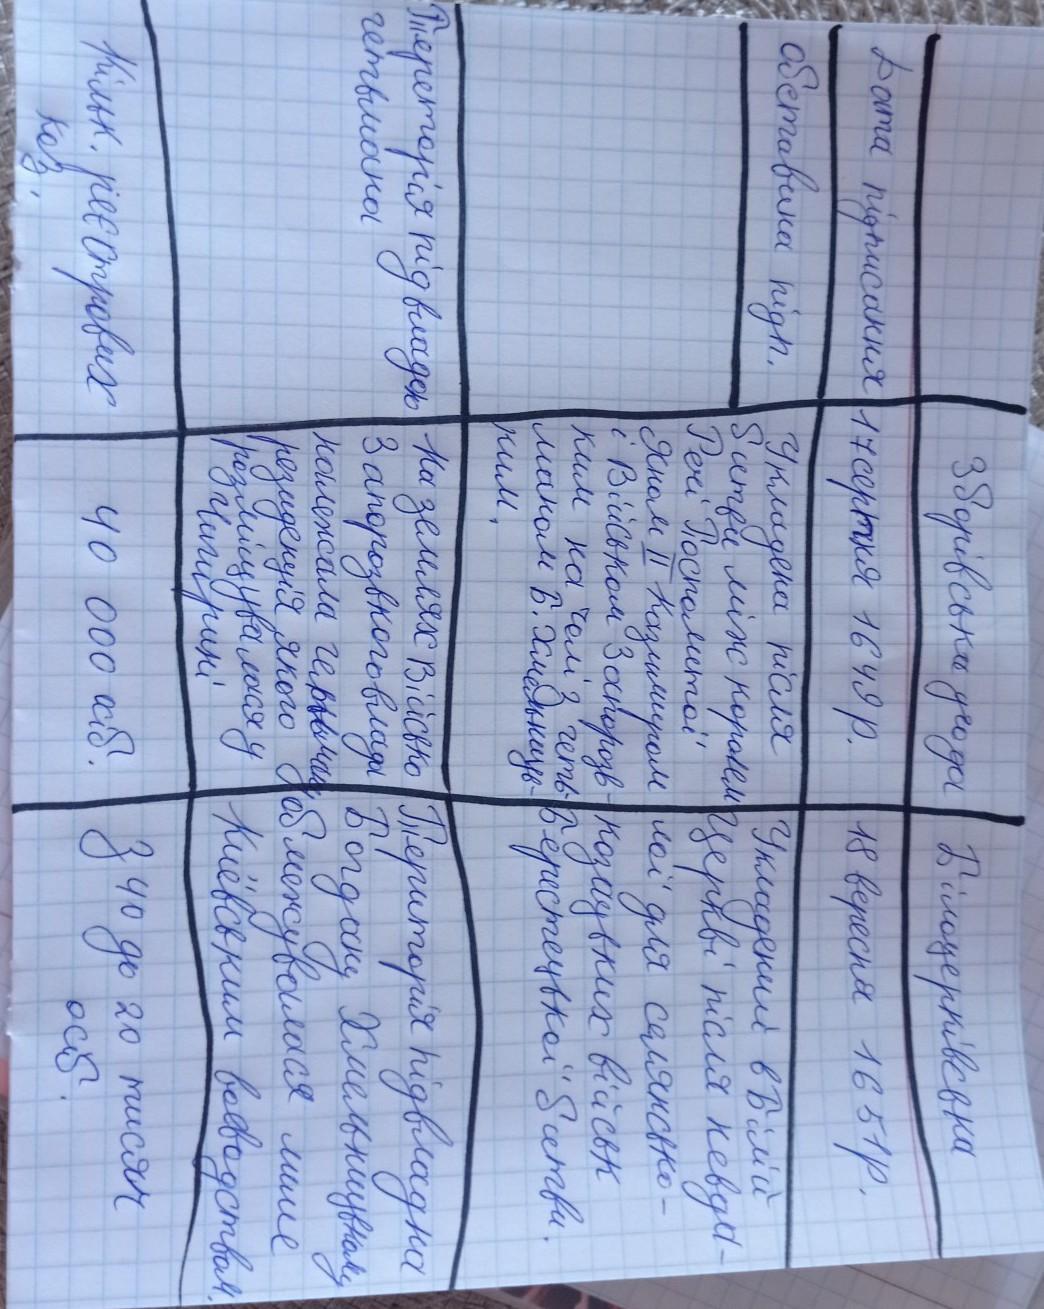 Зборівська угода
Білоцерківська
Дата підписання
17 серпня 1649 р.
18 вересня 1651р.
обставина підп.
Укладена після
битви між королем
Речі Посполитої
Яном II Казимиром
і Військом Запороз-
ким на чолі з геть-
маном Б. Хмельниць-
ким.
Укладений в Білій
Церкві після невда-
лої для селянсько-
козацьких військ
Берестецької битви.
Територія під владою
гетьмана
На землях Військо
Запорозького влада
належала гетьману
резиденція якого
розміщувалося у
Чигирині
Територія підвладна
Богдану Хмельницькому
обмежувалася лише
Київським воєводством.
Кільк. реєстрових
коз.
40 000 осіб.
З 40 до 20 тисяч
осіб.